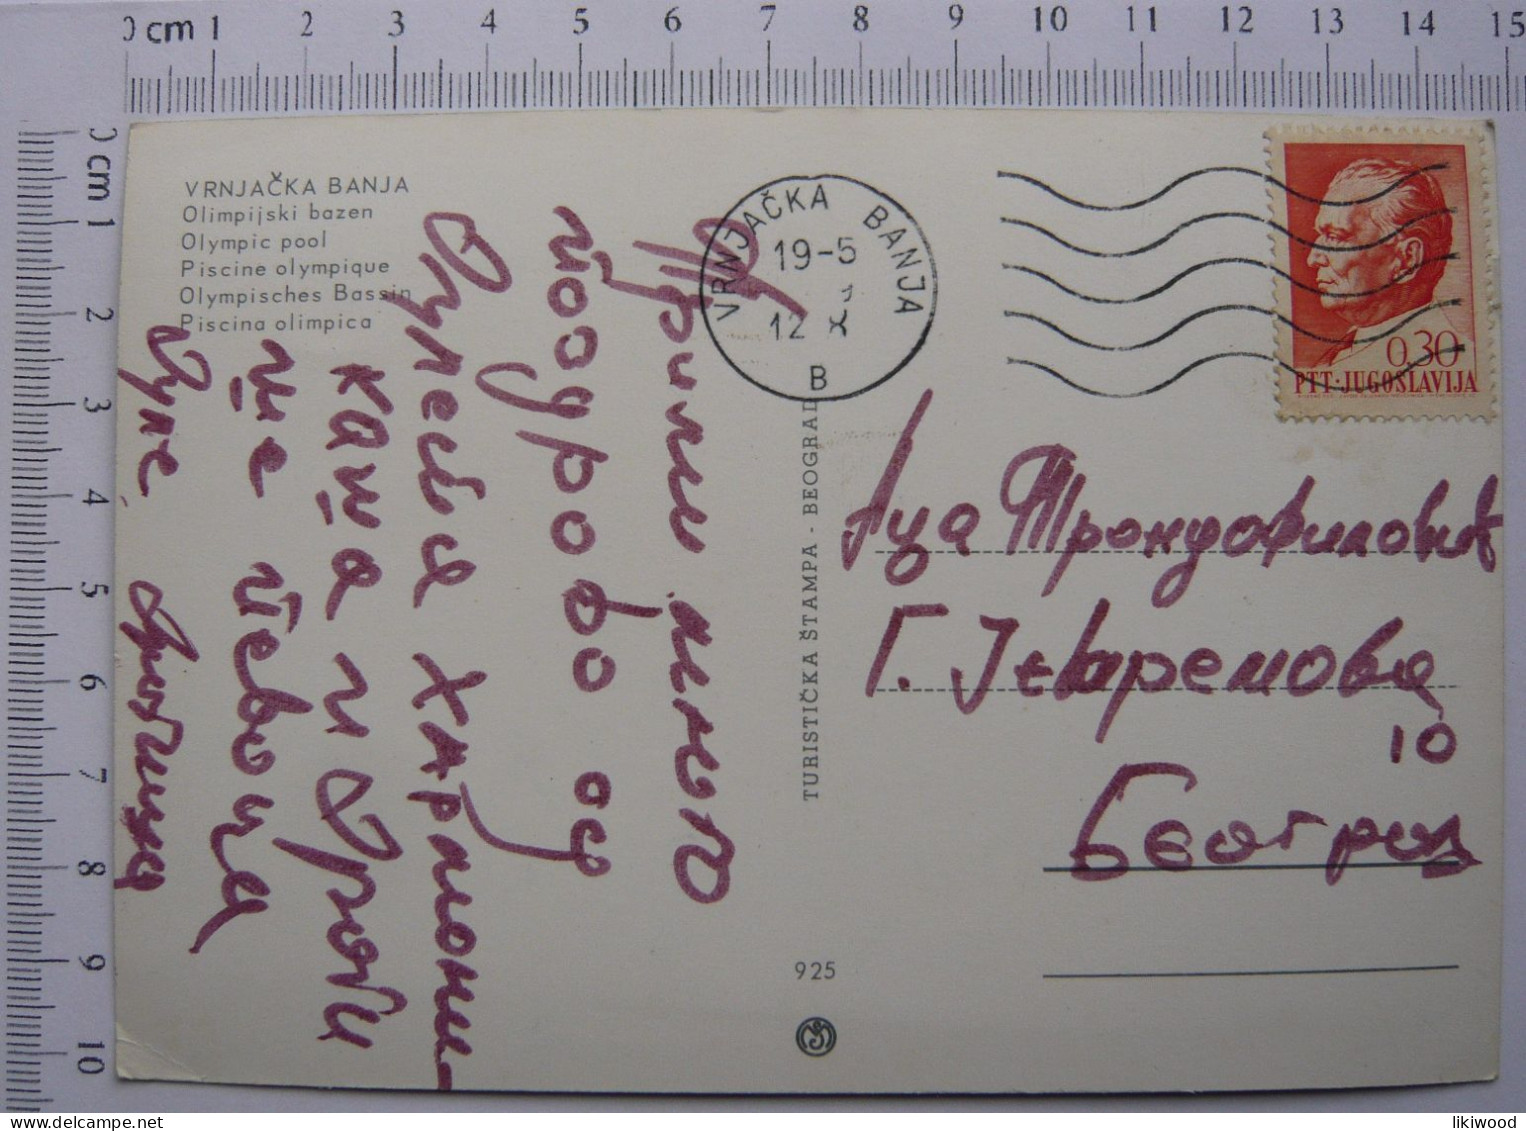 0 cm 1 2 3 4 5 6 7 8 9 10 11 12 13 14 15
0 cm 1 2 3 4 5 6 7 8 9 10
VRNJAČKA BANJA
Olimpijski bazen
Olympic pool
Piscine olympique
Olympisches Bassin
Piscina olimpica
VRNJAČKA BANJA
19-5
12 X
B
0,30
PTT·JUGOSLAVIJA
Прими много
поздрова од
хармони-
каша и
певача
TURISTIČKA ŠTAMPA - BEOGRAD
925
Аца Трандафиловић
Г. Јевремова
10
Београд
likiwood
delcampe.net